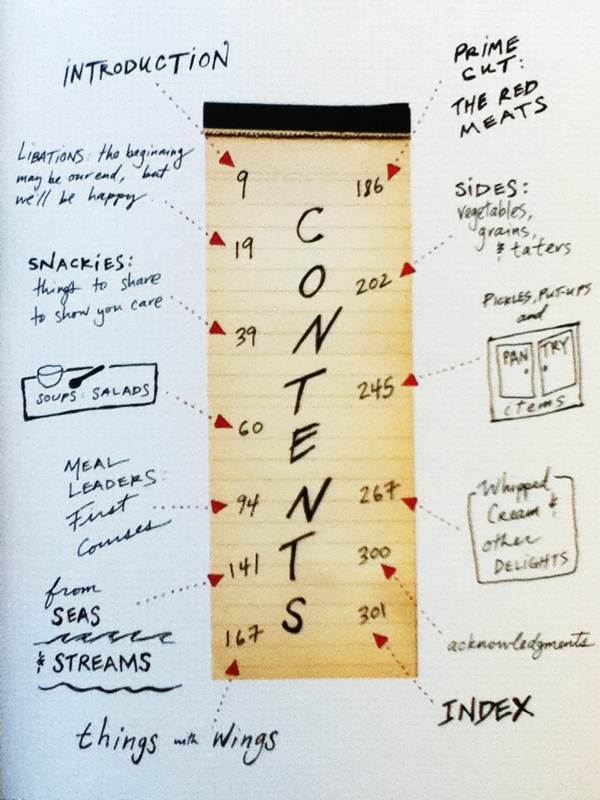 INTRODUCTION
9
LIBATIONS: the beginning
may be our end, but
we'll be happy.
19
SNACKIES:
things to share
to show you care
39
SOUPS & SALADS
60
MEAL
LEADERS:
First
Courses
94
from
SEAS
& STREAMS
141
things with wings
167
CONTENTS
PRIME
CUT:
THE RED
MEATS
186
SIDES:
vegetables,
grains,
& taters
202
PICKLES, PUT-UPS
and
PAN TRY
items
245
Whipped
Cream &
other
DELIGHTS
267
acknowledgments
300
INDEX
301